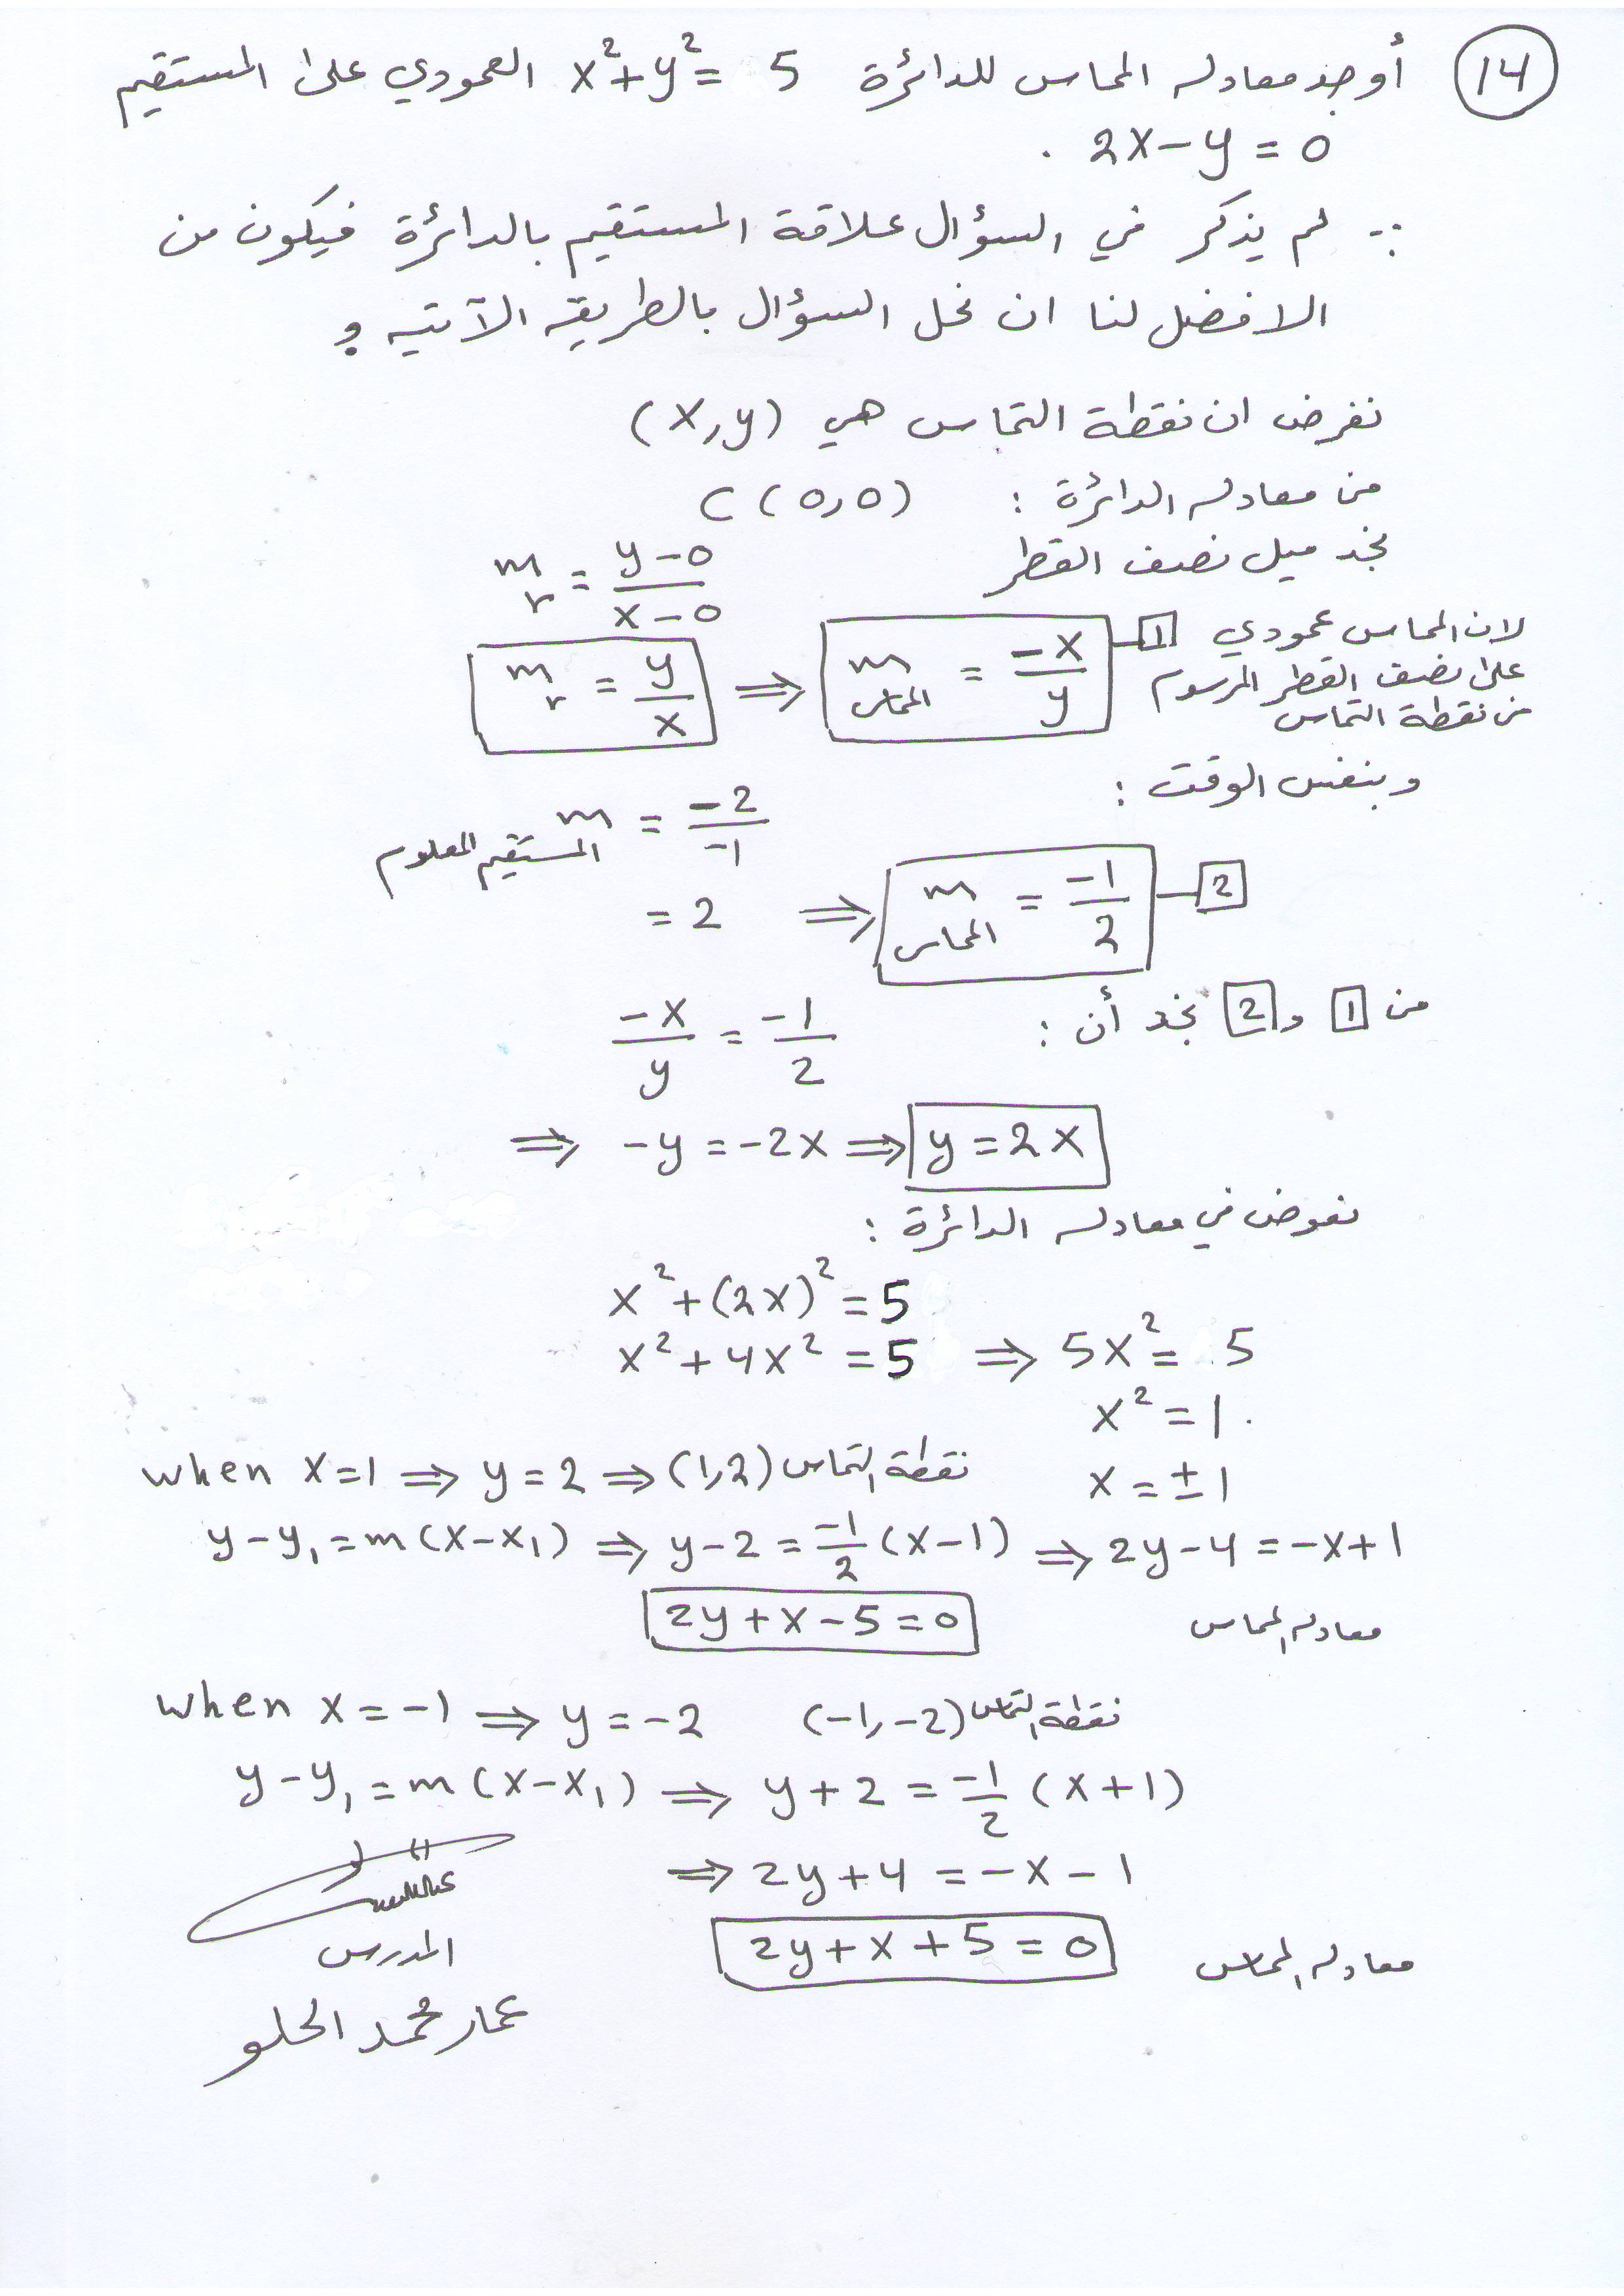 14 أوجد معادلة المماس للدائرة x²+y²= 5 العمودي على المستقيم
2x-y=0 .
∵ لم يذكر في السؤال علاقة المستقيم بالدائرة فيكون من
الافضل لنا ان نحل السؤال بالطريقة الآتية :
نفرض ان نقطة التماس هي (x,y)
من معادلة الدائرة : C (0,0)
نجد ميل نصف القطر m_r = (y-0)/(x-0)
m_r = y/x ⇒ m المماس = -x/y — 1 لان المماس عمودي
على نصف القطر المرسوم
من نقطة التماس
وبنفس الوقت :
m المستقيم المعلوم = -2/-1
= 2 ⇒ m المماس = -1/2 — 2
من 1 و 2 نجد أن :
-x/y = -1/2
⇒ -y = -2x ⇒ y = 2x
نعوض في معادلة الدائرة :
x²+(2x)² = 5
x²+4x² = 5 ⇒ 5x² = 5
x² = 1 .
x = ±1
when x=1 ⇒ y=2 ⇒ (1,2) نقطة التماس
y-y₁=m(x-x₁) ⇒ y-2 = -1/2 (x-1) ⇒ 2y-4 = -x+1
2y+x-5=0 معادلة المماس
when x=-1 ⇒ y=-2 (-1,-2) نقطة التماس
y-y₁=m(x-x₁) ⇒ y+2 = -1/2 (x+1)
⇒ 2y+4 = -x-1
2y+x+5=0 معادلة المماس
المدرس
عمار محمد الحلو